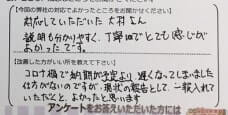 【今回の弊社の対応でよかったところをお聞かせください】
対応していただいた 大村さん
説明も分かりやすく、丁寧で とても感じが
よかったです。
【改善した方がいい所を教えて下さい】
コロナ禍で納期が予定より 遅くなってしまいました
仕方がないのですが 現状の報告として 一報入れて
いただくと、よかったと思います
アンケートをお答えいただいた方には